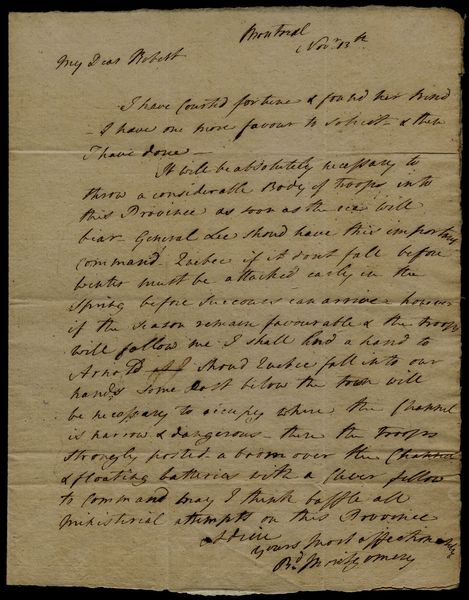 Montreal
Novr. 13th
My Dear Robert
I have Courted fortune & found her kind
- I have one more favour to solicit - & then
I have done -
It will be absolutely necessary to
throw a considerable Body of troops into
this Province as soon as the ice will
bear - General Lee shoud have this important
command - Quebec if it dont fall before
winter must be attacked early in the
Spring before succours can arrive - however
if the season remain favourable & the troops
will follow me I shall lend a hand to
Arnold shoud Quebec fall into our
hands some Post below the town will
be necessary to occupy where the Channel
is narrow & dangerous - there the troops
strongly posted a boom over the Channel
& floating batteries with a clever fellow
to command may I think baffle all
Ministerial attempts on this Province
Adieu
Yours most affectionately
Rd Montgomery